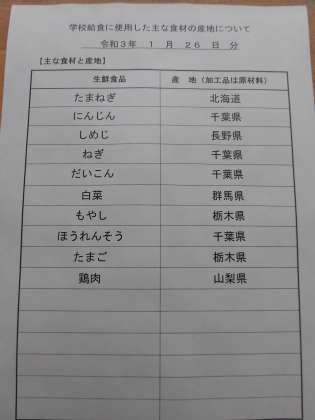 学校給食に使用した主な食材の産地について
令和3年 1 月 26 日 分
【主な食材と産地】
生鮮食品 産 地（加工品は原材料）
たまねぎ 北海道
にんじん 千葉県
しめじ 長野県
ねぎ 千葉県
だいこん 千葉県
白菜 群馬県
もやし 栃木県
ほうれんそう 千葉県
たまご 栃木県
鶏肉 山梨県